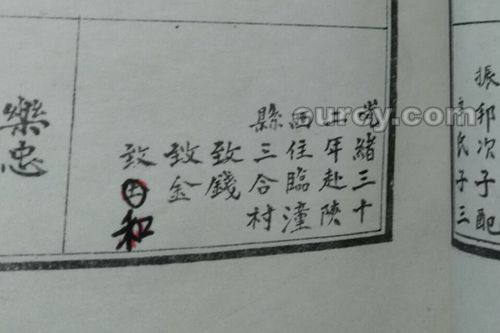 振邦次子配
氏子三
光緒三十
年赴陝
西住臨潼
縣三合村
致錢
致金
致田和
樂忠